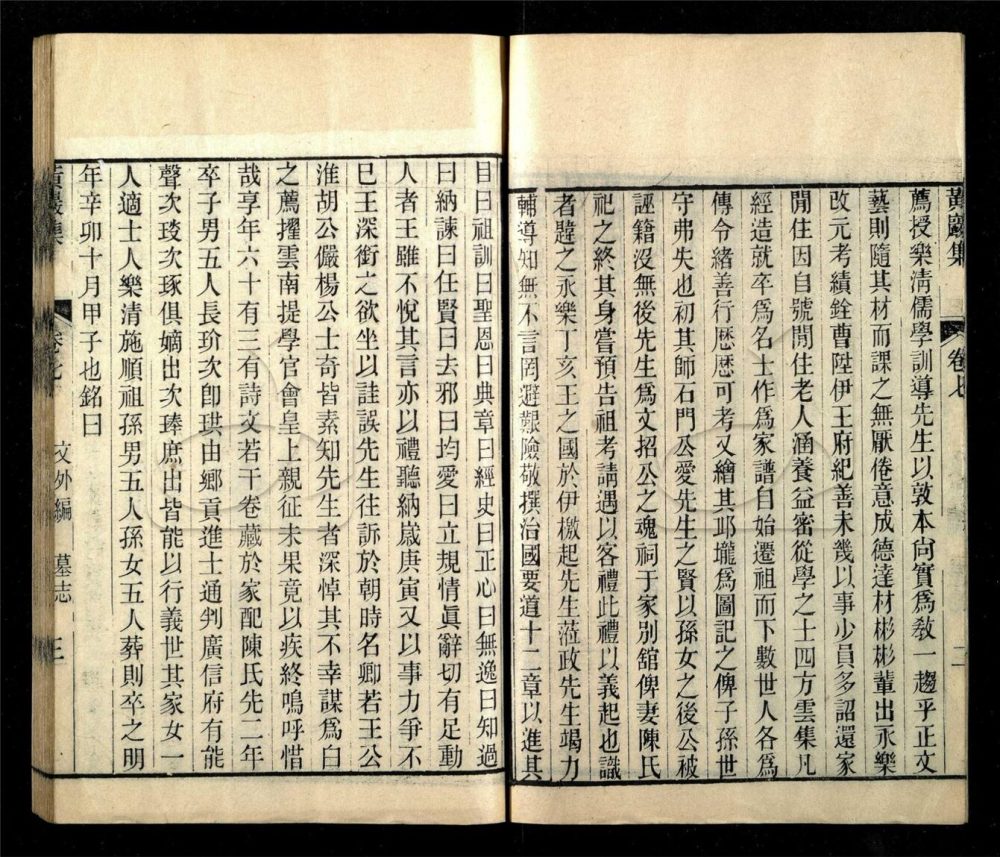 黃巖集 卷七 二
薦授樂淸儒學訓導先生以敦本尚實爲敎一趨乎正文
藝則隨其材而課之無厭倦意成德達材彬彬輩出永樂
改元考績銓曹陞伊王府紀善未幾以事少員多詔還家
閒住因自號閒住老人涵養益密從學之士四方雲集凡
經造就卒爲名士作爲家譜自始遷祖而下數世人各爲
傳令緒善行歷歷可考又繪其邱壠爲圖記之俾子孫世
守弗失也初其師石門公愛先生之賢以孫女之後公被
誣籍沒無後先生爲文招公之魂祠于家別舘俾妻陳氏
祀之終其身嘗預告祖考請遇以客禮此禮以義起也識
者韙之永樂丁亥王之國於伊檄起先生蒞政先生竭力
輔導知無不言罔避艱險敬撰治國要道十二章以進其
目曰祖訓曰聖恩曰典章曰經史曰正心曰無逸曰知過
曰納諫曰任賢曰去邪曰均愛曰立規情眞辭切有足動
人者王雖不悅其言亦以禮聽納歲庚寅又以事力爭不
巳王深銜之欲坐以詿誤先生往訴於朝時名卿若王公
淮胡公儼楊公士奇皆素知先生者深悼其不幸謀爲白
之薦擢雲南提學官會皇上親征未果竟以疾終嗚呼惜
哉享年六十有三有詩文若干卷藏於家配陳氏先二年
卒子男五人長玠次卽珙由鄉貢進士通判廣信府有能
聲次琰次琢俱嫡出次琫庶出皆能以行義世其家女一
人適士人樂清施順祖孫男五人孫女五人葬則卒之明
年辛卯十月甲子也銘曰
黃巖集 卷七 文外編 墓志 三